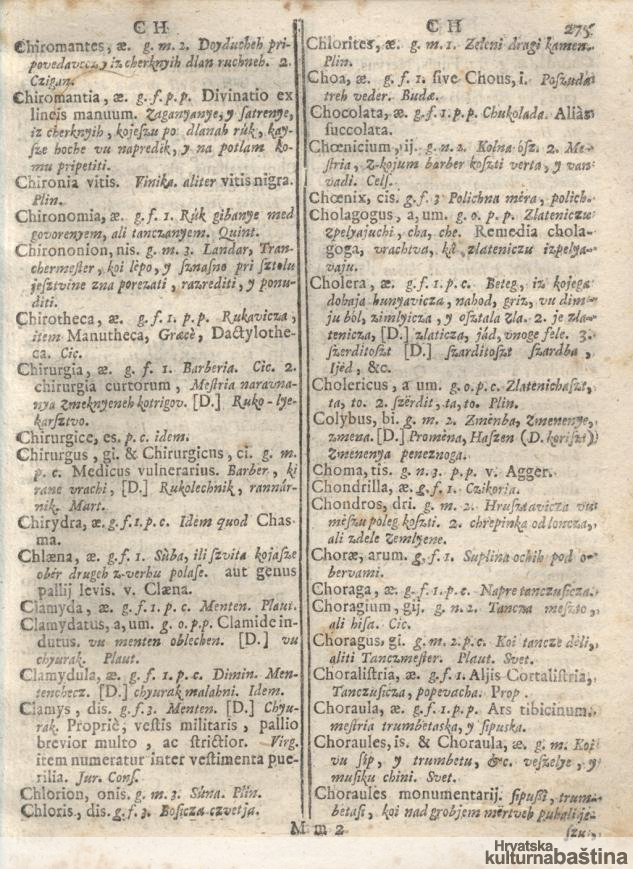 C H
Chiromantes, æ. g. m. 2. Doyducheh pri-
povedavecz, y iz cherknyih dlan ruchneh. 2.
Czigan.
Chiromantia, æ. g. f. p. p. Divinatio ex
lineis manuum. Zaganyanye, y ſatrenye,
iz cherknyih, kojeſzu po dlanah rúk, kay-
ſze hoche vu napredik, y na potlam ko-
mu pripetiti.
Chironia vitis. Vinika. aliter vitis nigra.
Plin.
Chironomia, æ. g. f. 1. Rúk gibanye med
govorenyem, ali tanczanyem. Quint.
Chirononion, nis. g. m. 3. Landar, Tran-
chermeſter, koi lépo, y ſznaſno pri ſztolu
jeſztvine zna porezati, razrediti, y ponu-
diti.
Chirotheca, æ. g. f. 1. p. p. Rukavicza,
item Manutheca, Græcè, Dactylothe-
ca. Cic.
Chirurgia, æ. g. f. 1. Barberia. Cic. 2.
chirurgia curtorum, Meſtria naravna-
nya zmeknyeneh kotrigov. [D.] Ruko-lye-
karſztvo.
Chirurgice, es. p. c. idem.
Chirurgus, gi. & Chirurgicus, ci. g. m.
p. c. Medicus vulnerarius. Barber, ki
rane vrachi, [D.] Rukolechnik, rannár-
nik. Mart.
Chirydra, æ. g. f. 1. p. c. Idem quod Chas-
ma.
Chlæna, æ. g. f. 1. Súba, ili ſzvita kojaſze
obér drugeh z-verhu polaſe. aut genus
pallij levis. v. Clæna.
Clamyda, æ. g. f. 1. p. c. Menten. Plaut.
Clamydatus, a, um. g. o. p. p. Clamide in-
dutus. vu menten oblechen. [D.] vu
chyurak. Plaut.
Clamydula, æ. g. f. 1. p. c. Dimin. Men-
tenchecz. [D.] chyurak malahni. Idem.
Clamys, dis. g. f. 3. Menten. [D.] Chyu-
rak. Propriè, veſtis militaris, pallio
brevior multo, ac ſtrictior. Virg.
item numeratur inter veſtimenta pue-
rilia. Jur. Conſ.
Chlorion, onis. g. m. 3. Súna. Plin.
Chloris, dis. g. f. 3. Boſicza czvetja.
C H 275
Chlorites, æ. g. m. 1. Zeleni dragi kamen.
Plin.
Choa, æ. g. f. 1. ſive Chous, i. Poszuda
treh veder. Budæ.
Chocolata, æ. g. f. 1. p. p. Chukolada. Aliàs
ſuccolata.
Chœnicium, ij. g. n. 2. Kolna ósz. 2. Me-
ſtria, z-kojum barber koſzti verta, y van
vadi. Celſ.
Chœnix, cis. g. f. 3 Polichna méra, polich.
Cholagogus, a, um. g. o. p. p. Zlateniczu
zpelyajuchi, cha, che. Remedia chola-
goga, vrachtva, ka zlateniczu izpelya-
vaju.
Cholera, æ. g. f. 1. p. c. Beteg, iz kojega
dohaja hunyavicza, nahod, griz, vu dim-
ju ból, zimlyicza, y oſztala zla. 2. je zla-
tenicza, [D.] zlaticza, jád, vnoge fele. 3.
ſzerditoſzt [D.] ſzarditoſzt ſzardba,
Ijéd, &c.
Cholericus, a um. g. o. p. c. Zlatenichaſzt,
ta, to. 2. ſzérdit, ta, to. Plin.
Colybus, bi. g. m. 2. Zménba, zmenenye,
zmena. [D.] Proména, Haſzen (D. koriſzt)
zmenenya peneznoga.
Choma, tis. g. n. 3. p. p. v. Agger.
Chondrilla, æ. g. f. 1. Czikoria.
Chondros, dri. g. m. 2. Hruſztavicza vu
méſzu poleg koſzti. 2. chrepinka od loncza,
ali zdele zemlyene.
Choræ, arum. g. f. 1. Suplina ochih pod o-
bervami.
Choraga, æ. g. f. 1. p. c. Napre tanczuſicza.
Choragium, gij. g. n. 2. Tancza meſzto,
ali hiſa. Cic.
Choragus, gi. g. m. 2. p. c. Koi tancze déli,
aliti Tanczmeſter. Plaut. Svet.
Choraliſtria, æ. g. f. 1. Aljis Cortaliſtria,
Tanczuſicza, popevacha. Prop.
Choraula, æ. g. f. 1. p. p. Ars tibicinum.
meſtria trumbetaska, y ſipuska.
Choraules, is. & Choraula, æ. g. m. Koi
vu ſip, y trumbetu, &c. veſzelye, y
muſiku chini. Svet.
Choraules monumentarij. ſipuſſi, trum-
betaſi, koi nad grobjem mértveh puhali je-
ſzu,
M m 2
Hrvatska
kulturnabaština